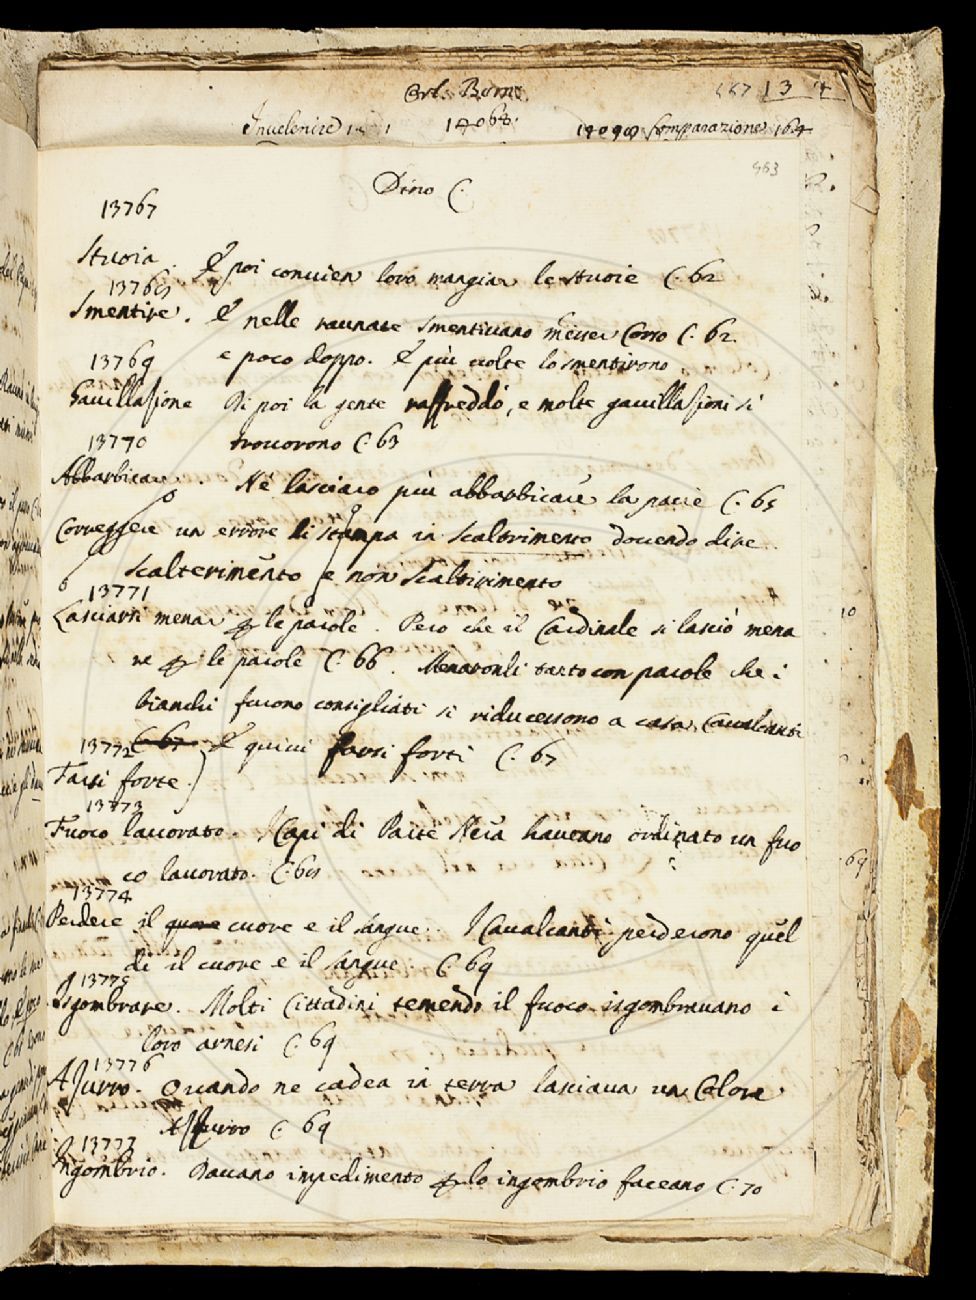 Orl. Bern.
13
Invelenire
14068.
14098 Comparazione 164
463
Dino C.
13767
Stuoia . E poi convien loro mangiar le stuoie C. 62
13768
Smentire . E nelle raunate smentivano messer Corso C. 62.
e poco doppo. E più volte lo smentirono
13769
Gavillasione Di poi la gente raffreddò, e molte gavillasioni si
trovorono C. 63
13770
Abbarbicare . Nè lasciaro più abbarbicare la parte C. 65
Correggere un errore di stampa in scaltrimento dovendo dire
scalterimento e non scaltrimento
13771
Lasciarsi menar per le parole . Però che il Cardinale si lasciò mena
re per le parole C. 66 . Menaronli tanto con parole che i
bianchi furono consigliati si riducessono a casa Cavalcanti
13772 C. 67 E quivi farsi forti C. 67
Farsi forte .
13773
Fuoco lavorato . I Capi di Parte Nera haveano ordinato un fuo
co lavorato. C. 68
13774
Perdere il quore cuore e il sangue . I Cavalcanti perderono quel
dì il cuore e il sangue C. 69
13775
Isgombrare . Molti Cittadini temendo il fuoco isgombravano i
loro arnesi C. 69
13776
Assurro . Quando ne cadea in terra lasciava un Colore
Assurro C. 69
13777
Ingombrio . Davano impedimento per lo ingombrio faceano C. 70
69